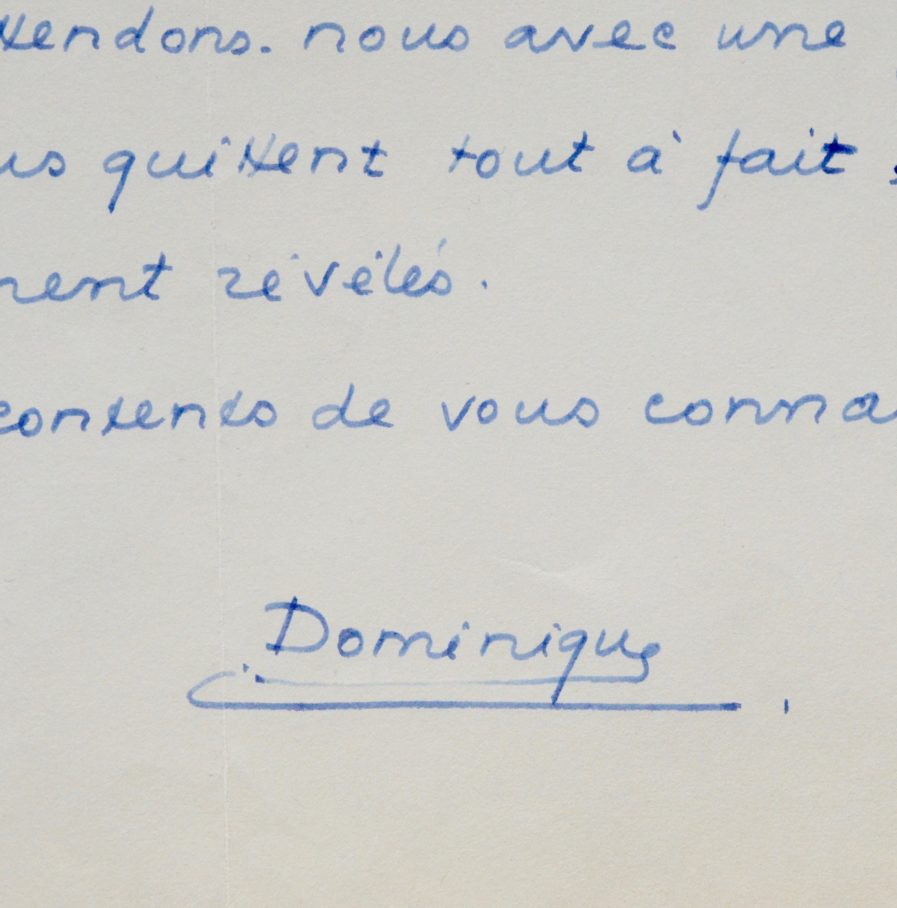 ttendons-nous avec une
us quittent tout à fait
nent révélés.
contents de vous conna
Dominique